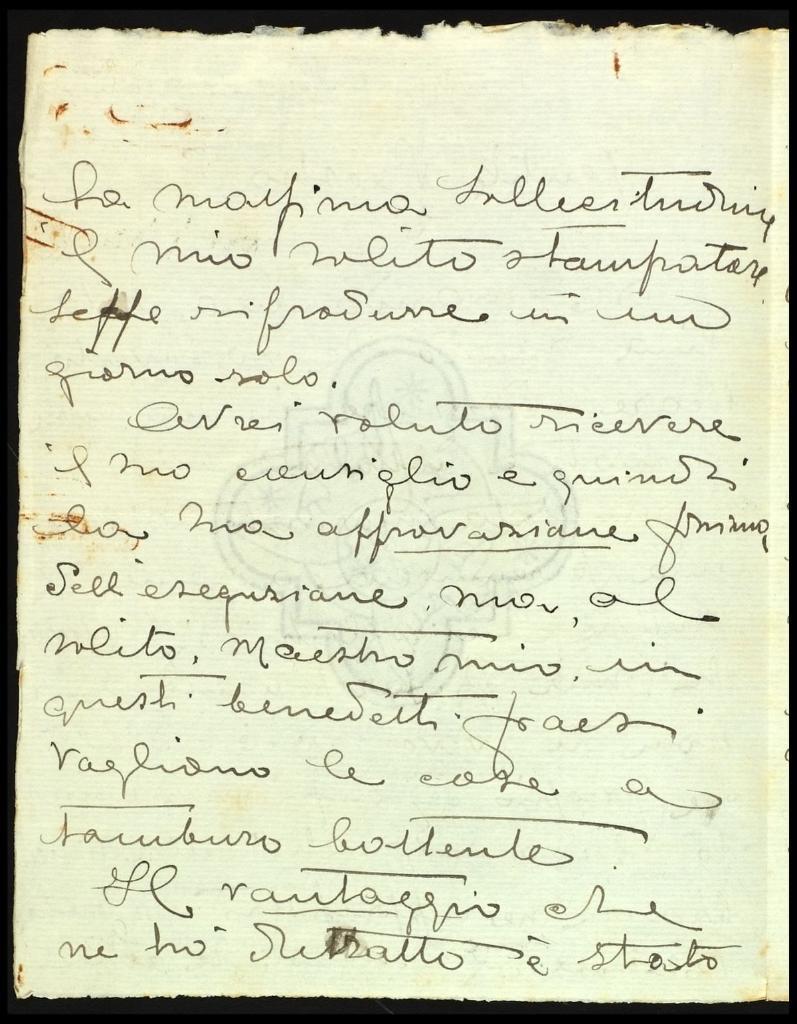 la massima sollecitudine
il mio solito stampatore
seppe riprodurre in un
giorno solo.
Avrei voluto ricevere
il suo consiglio e quindi
la sua approvazione prima
dell'esequziane, ma, al
solito, Maestro mio, in
questi benedetti paesi
vogliono le cose a
tamburo battente.
Il vantaggio che
ne ho detratto è stato